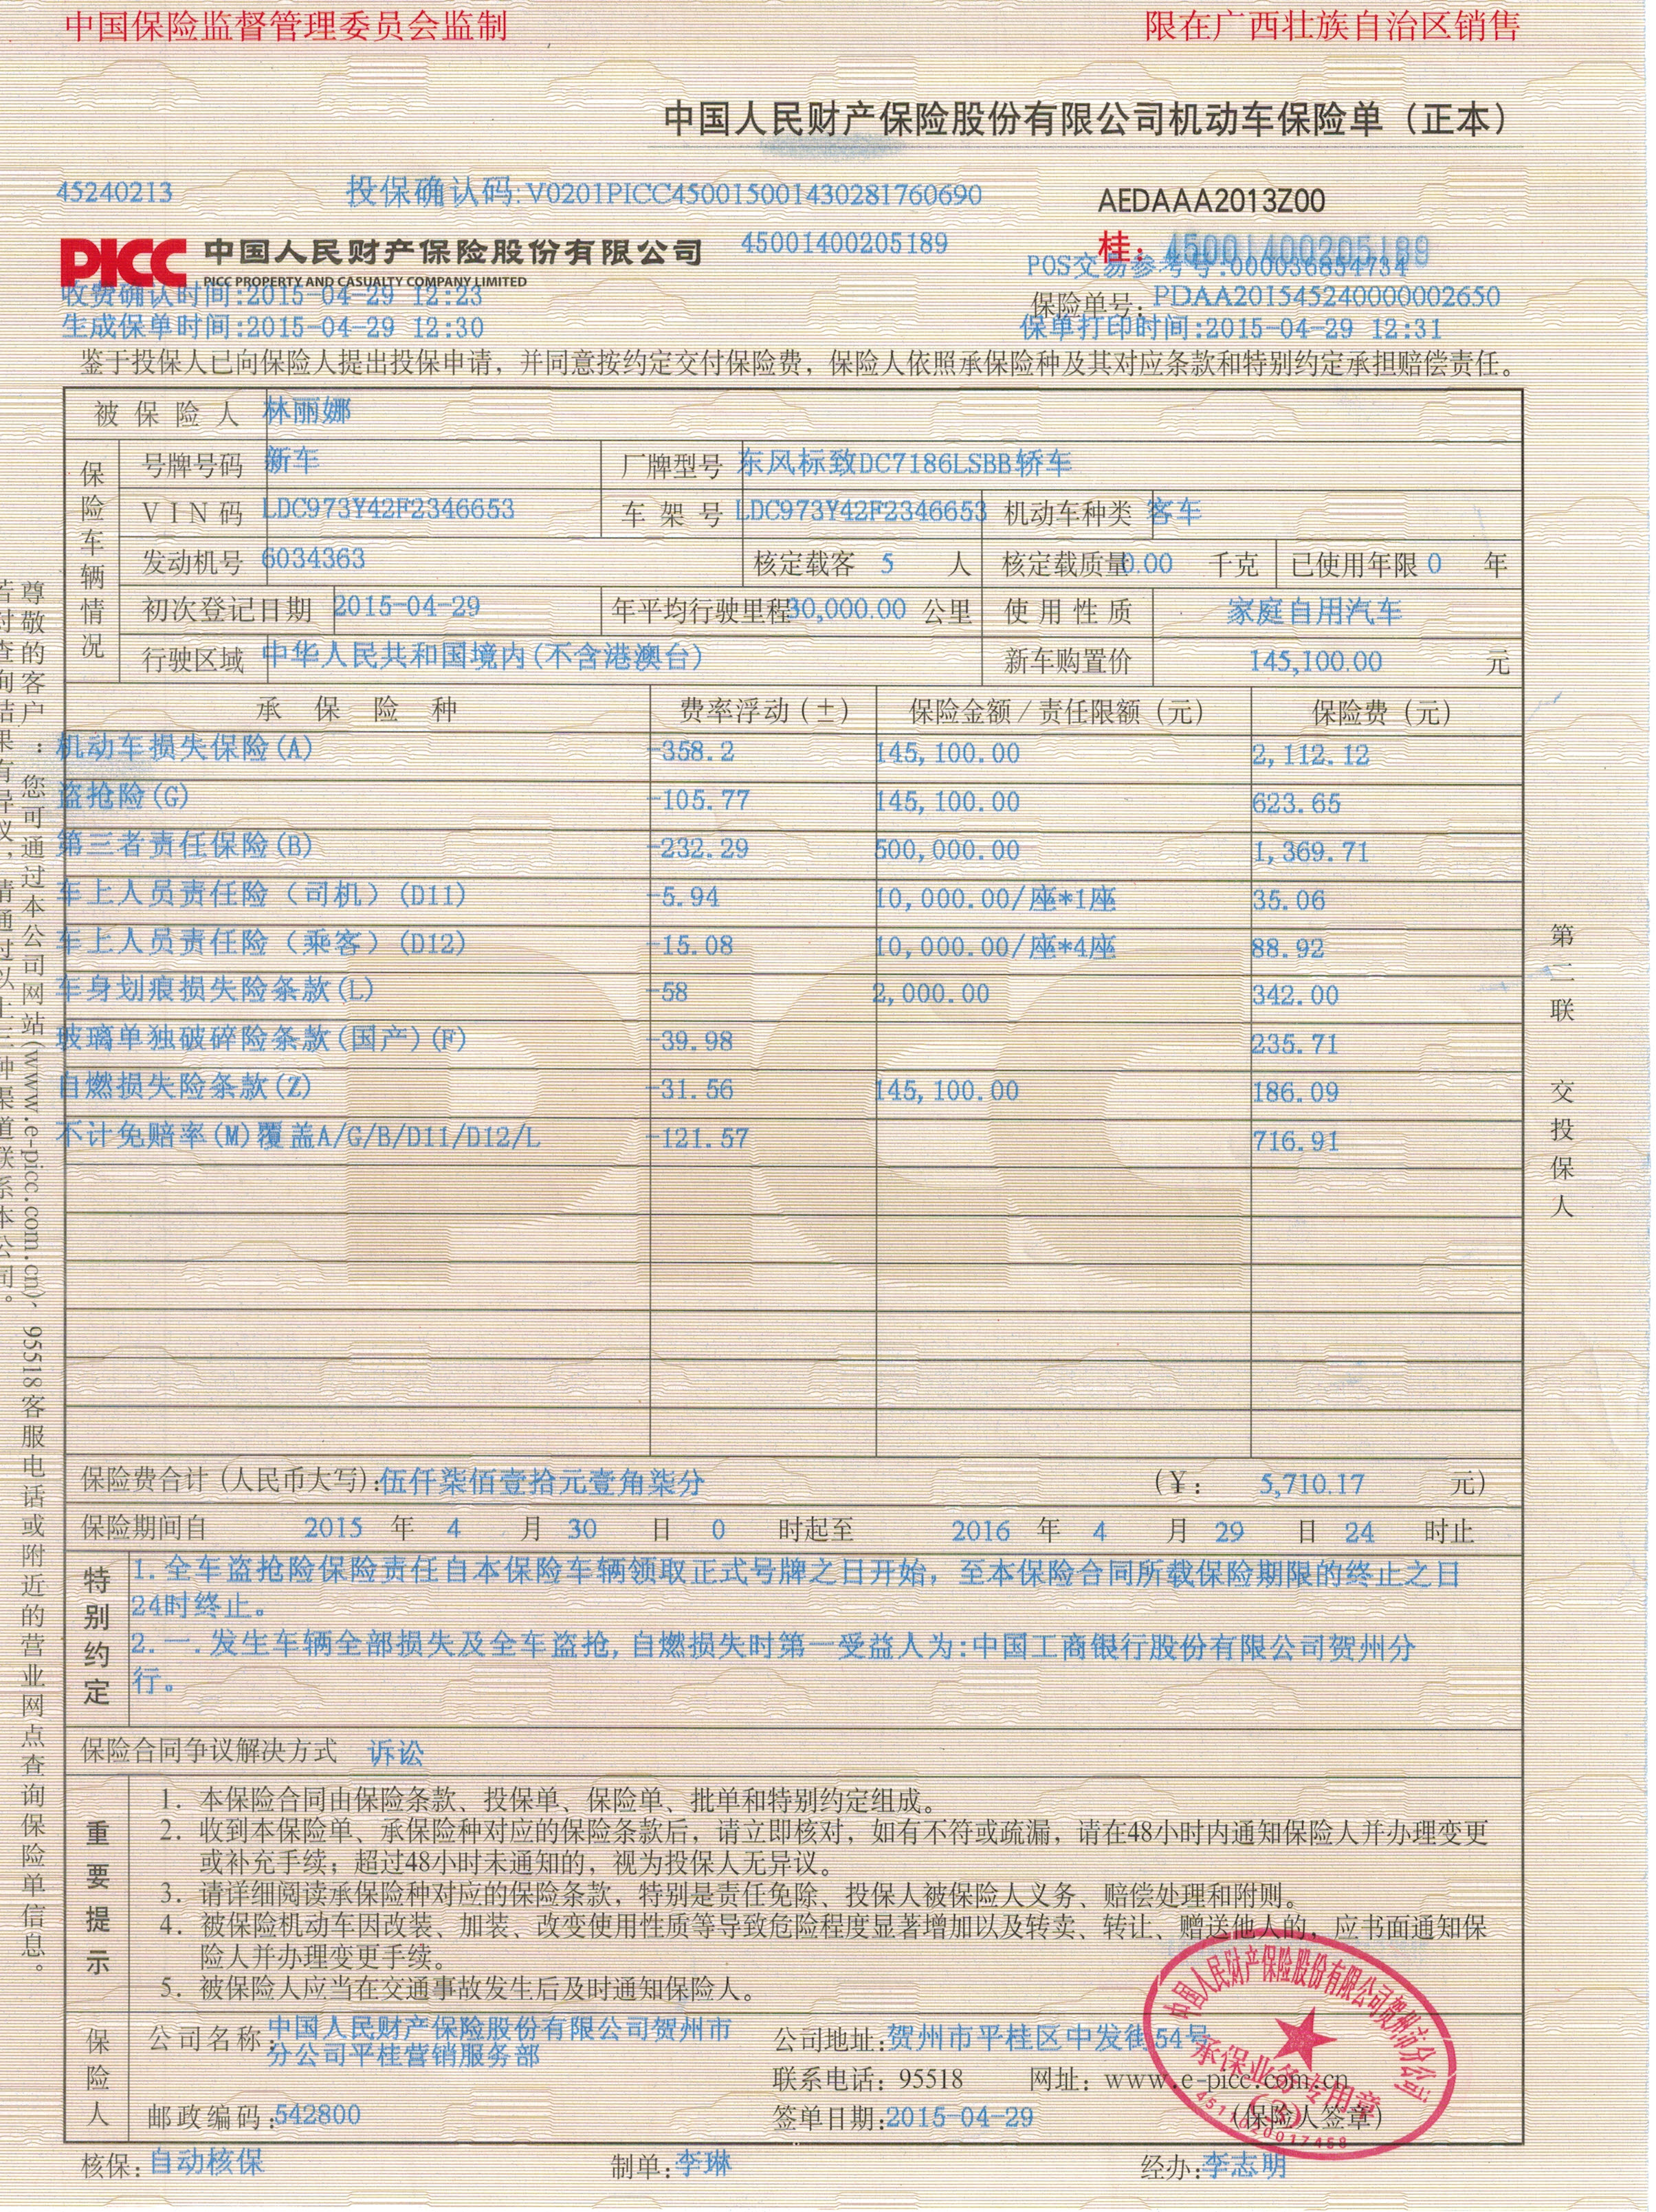 中国保险监督管理委员会监制
限在广西壮族自治区销售
中国人民财产保险股份有限公司机动车保险单（正本）
45240213
投保确认码:V0201PICC450015001430281760690
AEDAAA2013Z00
PICC 中国人民财产保险股份有限公司
PICC PROPERTY AND CASUALTY COMPANY LIMITED
45001400205189
桂：45001400205189
POS交易参考号:000036854734
收费确认时间:2015-04-29 12:23
保险单号：PDAA201545240000002650
生成保单时间:2015-04-29 12:30
保单打印时间:2015-04-29 12:31
鉴于投保人已向保险人提出投保申请，并同意按约定交付保险费，保险人依照承保险种及其对应条款和特别约定承担赔偿责任。
被保险人 林丽娜
保险车辆情况
号牌号码 新车 厂牌型号 东风标致DC7186LSBB轿车
VIN码 LDC973Y42F2346653 车架号 LDC973Y42F2346653 机动车种类 客车
发动机号 6034363 核定载客 5 人 核定载质量 0.00 千克 已使用年限 0 年
初次登记日期 2015-04-29 年平均行驶里程 30,000.00 公里 使用性质 家庭自用汽车
行驶区域 中华人民共和国境内(不含港澳台) 新车购置价 145,100.00 元
承保险种 费率浮动（±） 保险金额／责任限额（元） 保险费（元）
机动车损失保险(A) -358.2 145,100.00 2,112.12
盗抢险(G) -105.77 145,100.00 623.65
第三者责任保险(B) -232.29 500,000.00 1,369.71
车上人员责任险（司机）(D11) -5.94 10,000.00/座*1座 35.06
车上人员责任险（乘客）(D12) -15.08 10,000.00/座*4座 88.92
车身划痕损失险条款(L) -58 2,000.00 342.00
玻璃单独破碎险条款(国产)(F) -39.98 235.71
自燃损失险条款(Z) -31.56 145,100.00 186.09
不计免赔率(M)覆盖A/G/B/D11/D12/L -121.57 716.91
保险费合计（人民币大写）:伍仟柒佰壹拾元壹角柒分 （¥： 5,710.17 元）
保险期间自 2015 年 4 月 30 日 0 时起至 2016 年 4 月 29 日 24 时止
特别约定
1.全车盗抢险保险责任自本保险车辆领取正式号牌之日开始，至本保险合同所载保险期限的终止之日
24时终止。
2.一.发生车辆全部损失及全车盗抢,自燃损失时第一受益人为:中国工商银行股份有限公司贺州分
行。
保险合同争议解决方式 诉讼
重要提示
1. 本保险合同由保险条款、投保单、保险单、批单和特别约定组成。
2. 收到本保险单、承保险种对应的保险条款后，请立即核对，如有不符或疏漏，请在48小时内通知保险人并办理变更
或补充手续；超过48小时未通知的，视为投保人无异议。
3. 请详细阅读承保险种对应的保险条款，特别是责任免除、投保人被保险人义务、赔偿处理和附则。
4. 被保险机动车因改装、加装、改变使用性质等导致危险程度显著增加以及转卖、转让、赠送他人的，应书面通知保
险人并办理变更手续。
5. 被保险人应当在交通事故发生后及时通知保险人。
保险人
公司名称：中国人民财产保险股份有限公司贺州市
分公司平桂营销服务部
公司地址:贺州市平桂区中发街54号
联系电话：95518 网址：www.e-picc.com.cn
邮政编码:542800 签单日期:2015-04-29 （保险人签章）
核保:自动核保 制单:李琳 经办:李志明
中国人民财产保险股份有限公司贺州市分公司
承保业务专用章
第二联 交投保人
尊敬的客户：您可通过本公司网站(www.e-picc.com.cn)、95518客服电话或附近的营业网点查询保险单信息。
若对查询结果有异议，请通过以上三种渠道联系本公司。